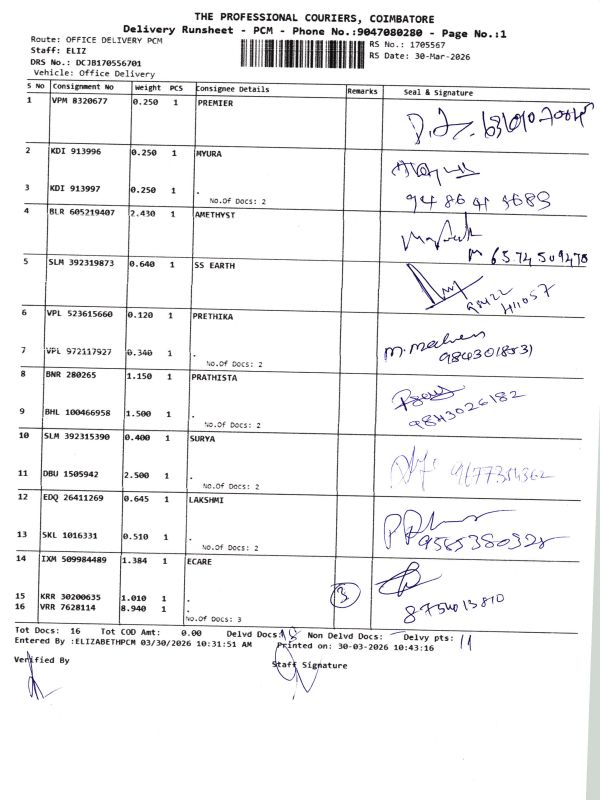 THE PROFESSIONAL COURIERS, COIMBATORE
Delivery Runsheet - PCM - Phone No.:9047080280 - Page No.:1
Route: OFFICE DELIVERY PCM
RS No.: 1705567
Staff: ELIZ
RS Date: 30-Mar-2026
DRS No.: DCJB170556701
Vehicle: Office Delivery
S No Consignment No Weight PCS Consignee Details Remarks Seal & Signature
1 VPM 8320677 0.250 1 PREMIER
2 KDI 913996 0.250 1 MYURA
3 KDI 913997 0.250 1 .
No.Of Docs: 2
4 BLR 605219407 2.430 1 AMETHYST
M 6574509478
5 SLM 392319873 0.640 1 SS EARTH
6 VPL 523615660 0.120 1 PRETHIKA
7 VPL 972117927 0.340 1 .
No.Of Docs: 2
9843018531
8 BNR 280265 1.150 1 PRATHISTA
9843026182
9 BHL 100466958 1.500 1 .
No.Of Docs: 2
10 SLM 392315390 0.400 1 SURYA
11 DBU 1505942 2.500 1 .
No.Of Docs: 2
12 EDQ 26411269 0.645 1 LAKSHMI
13 SKL 1016331 0.510 1 .
No.Of Docs: 2
14 IXM 509984489 1.384 1 ECARE
3
15 KRR 30200635 1.010 1
16 VRR 7628114 8.940 1 .
No.Of Docs: 3
Tot Docs: 16 Tot COD Amt: 0.00 Delvd Docs: Non Delvd Docs: Delvy pts: 11
Entered By :ELIZABETHPCM 03/30/2026 10:31:51 AM Printed on: 30-03-2026 10:43:16
Verified By Staff Signature